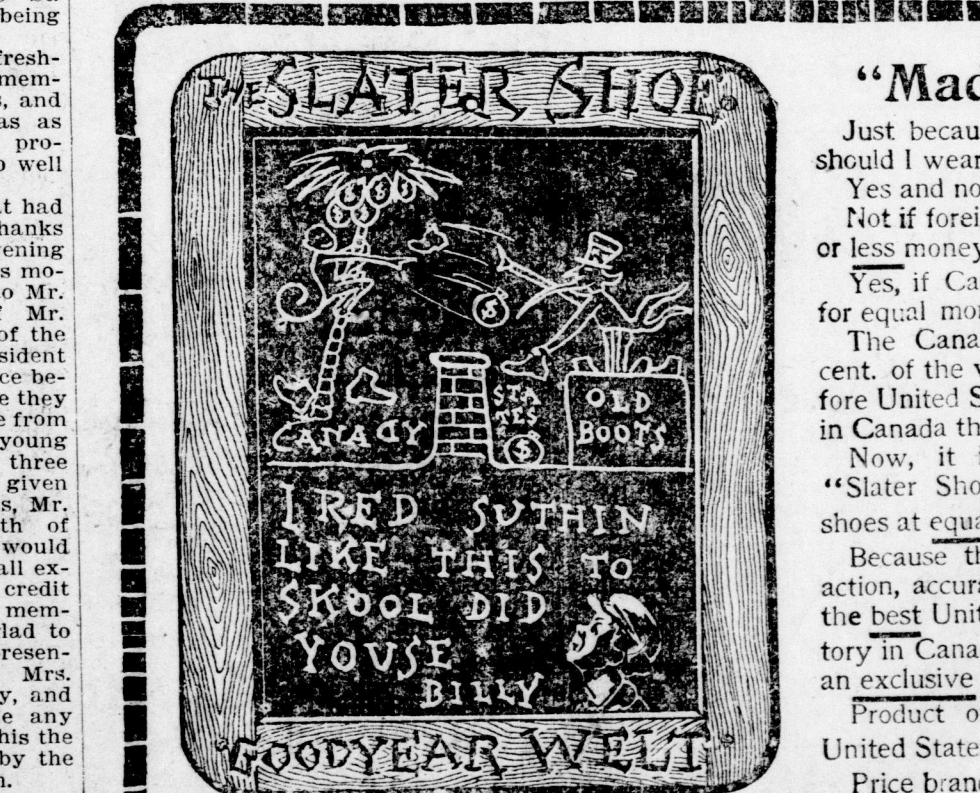 being
fresh-
mem-
s, and
as as
pro-
o well
at had
hanks
vening
s mo-
o Mr.
f Mr.
of the
sident
ce be-
e they
e from
young
three
given
s, Mr.
th of
would
all ex-
credit
mem-
glad to
resen-
Mrs.
y, and
e any
his the
by the
n.
THE SLATER SHOE.
$ $ $
$ $
$
STA
TES
$
CANADY
OLD
BOOTS
I RED SUTHIN
LIKE THIS TO
SKOOL DID
YOUSE
BILLY
GOODYEAR WELT
"Mad
Just becau
should I wear
Yes and no
Not if forei
or less money
Yes, if Ca
for equal mon
The Cana
cent. of the v
fore United S
in Canada th
Now, it i
"Slater Sho
shoes at equa
Because th
action, accura
the best Unit
tory in Cana
an exclusive
Product o
United State
Price bran